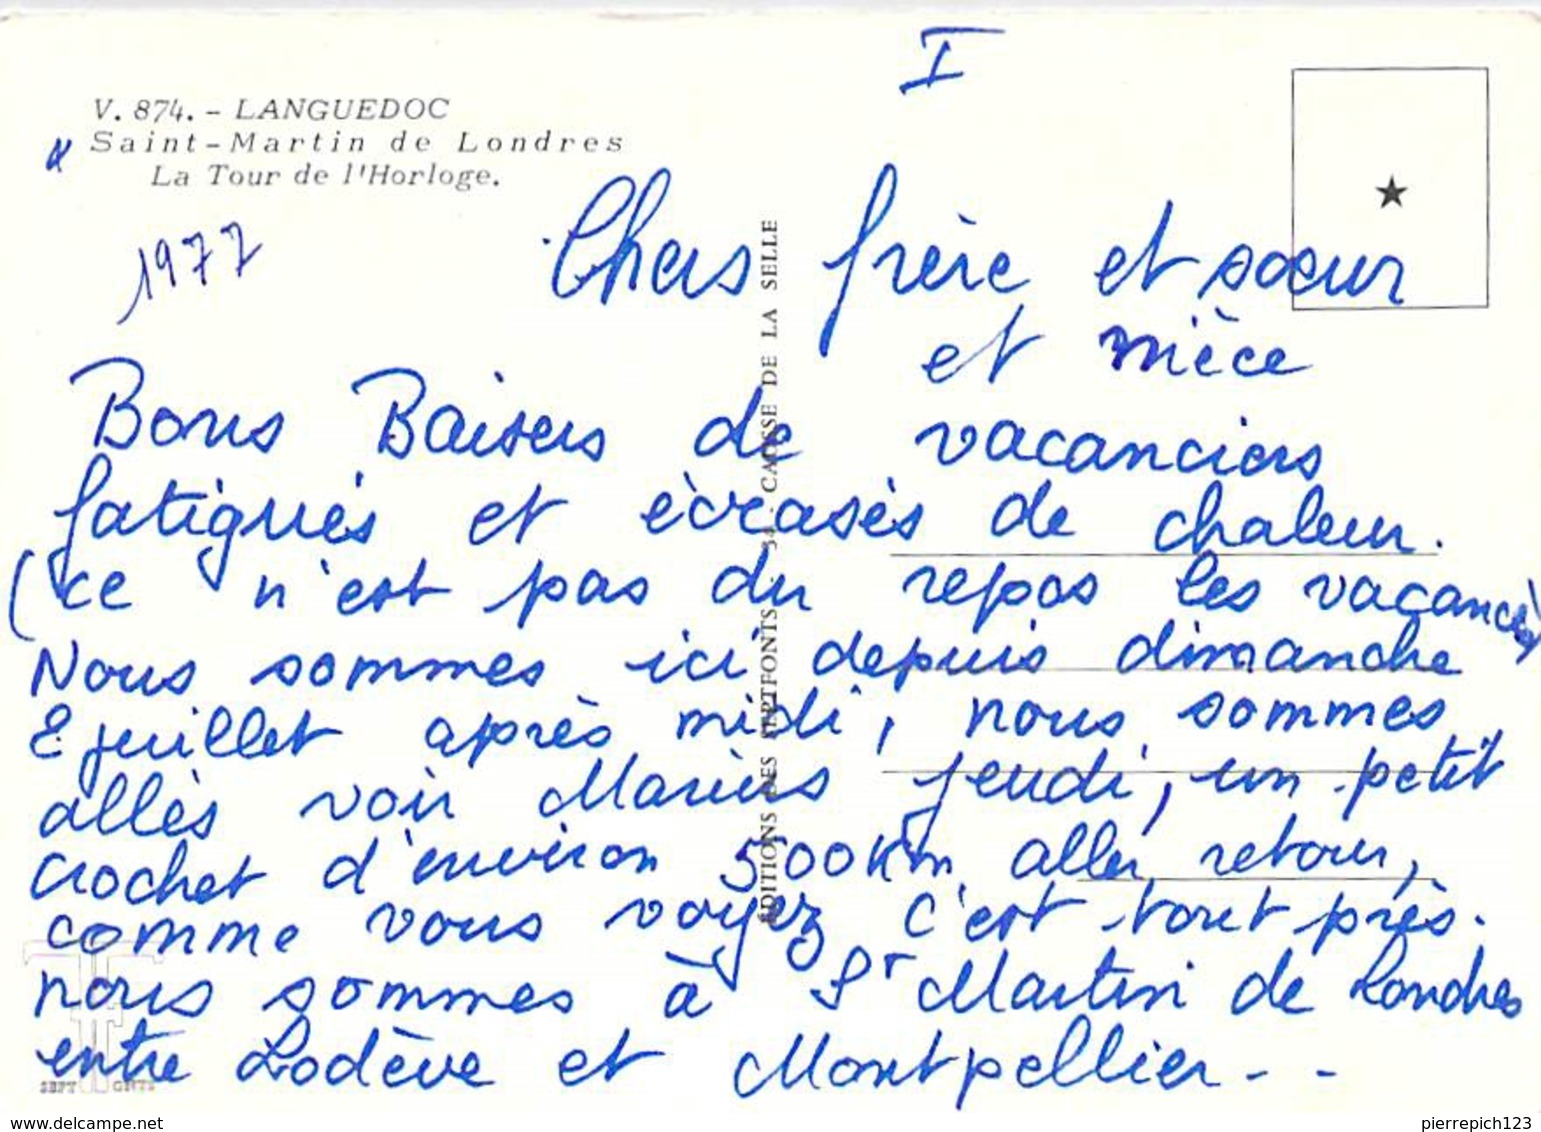 I
V. 874. - LANGUEDOC
Saint-Martin de Londres
La Tour de l'Horloge.
1977
Chers frère et sœur
et nièce
Bons Baisers de vacanciers
fatigués et écrasés de chaleur.
(ce n'est pas du repos les vacances)
Nous sommes ici depuis dimanche
juillet après midi, nous sommes
allés voir Marius jeudi, un petit
crochet d'environ 500 Km aller retour,
comme vous voyez c'est tout près.
nous sommes à St Martin de Londres
entre Lodève et Montpellier - -
ÉDITIONS DES SEPTFONTS 34 - CAUSSE DE LA SELLE
pierrepich123